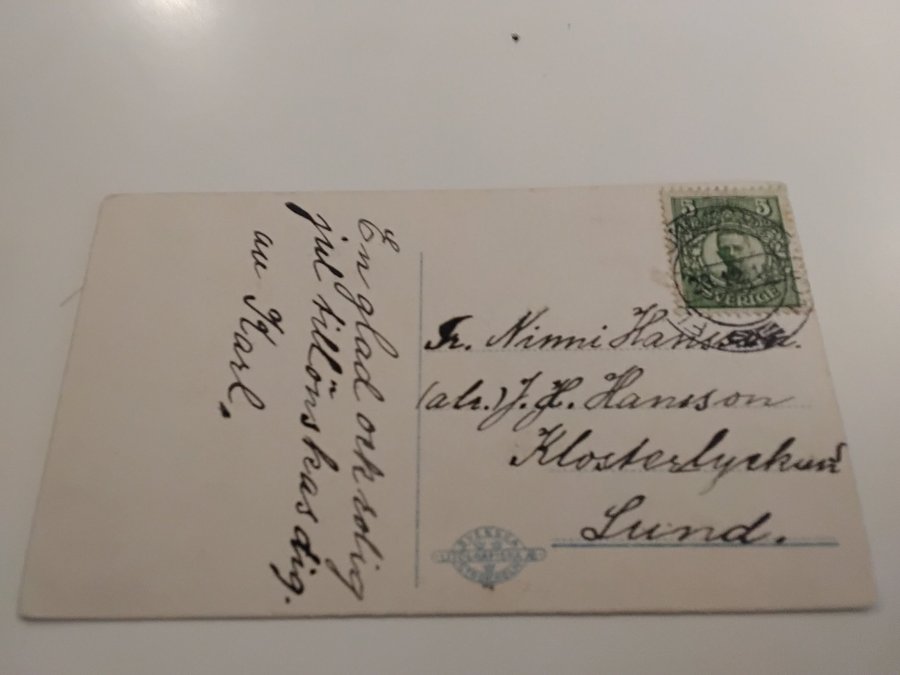 En glad och rolig
jul tillönskas dig.
av Karl.
5 5
SVERIGE
Fr. Ninni Hansson.
(adr.) J. H. Hansson
Klosterlyckan
Lund.
SVENSKA